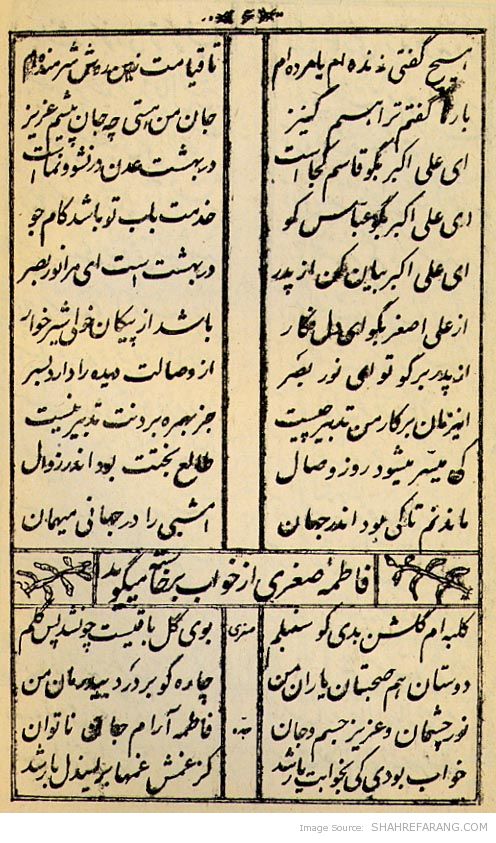 هیچ گفتی زنده ام یا مرده ام تا قیامت زین روش شرمنده ام
بارها گفتم ترا هستم کنیز جان من هستی چه جان پیشم عزیز
ای علی اکبر بگو قاسم کجا است در بهشت عدن در نشو و نماست
ای علی اکبر بگو عباس کو خدمت باب تو باشد کام جو
ای علی اکبر بیان کن از پدر در بهشت است ای مرا نور بصر
از علی اصغر بگو ای دل فکار باشد از پیکان خولی شیر خوار
از پدر برگو تو ای نور بصر از وصالت دیده را دارد بسر
اینزمان بر کار من تدبیر چیست جز بهره بردنت تدبیر نیست
کی میسر میشود روز وصال طالع بختت بود اندر زوال
ماندنم تا کی بود اندر جهان امشبی را در جهانی میهمان
فاطمه صغری از خواب برخاسته میگوید
کلبه ام گلشن بدی کو سنبلم صغری بوی گل باقیست چونشد پس گلم
دوستان هم صحبتان یاران من چاره گو بر درد من
نور چشمان و عزیز جسم و جان جده فاطمه آرام جان ناتوان
خواب بودی کی بخوابت یار شد کز غمش غمها دل بار شد
Image Source: SHAHREFARANG.COM